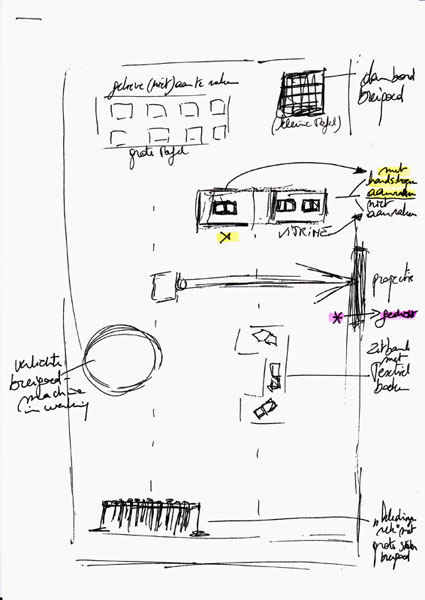 gelieve (niet) aan te raken
dambord
breigoed
(kleine tafel)
grote tafel
met
handschoen
aanraken
niet
aanraken
VITRINE
x
projectie
*
gedicht
verlichte
breigoed-
machine
in werking
Zitbank
met
textiel
boeken
"kledings
rek" met
grote stalen
breigoed